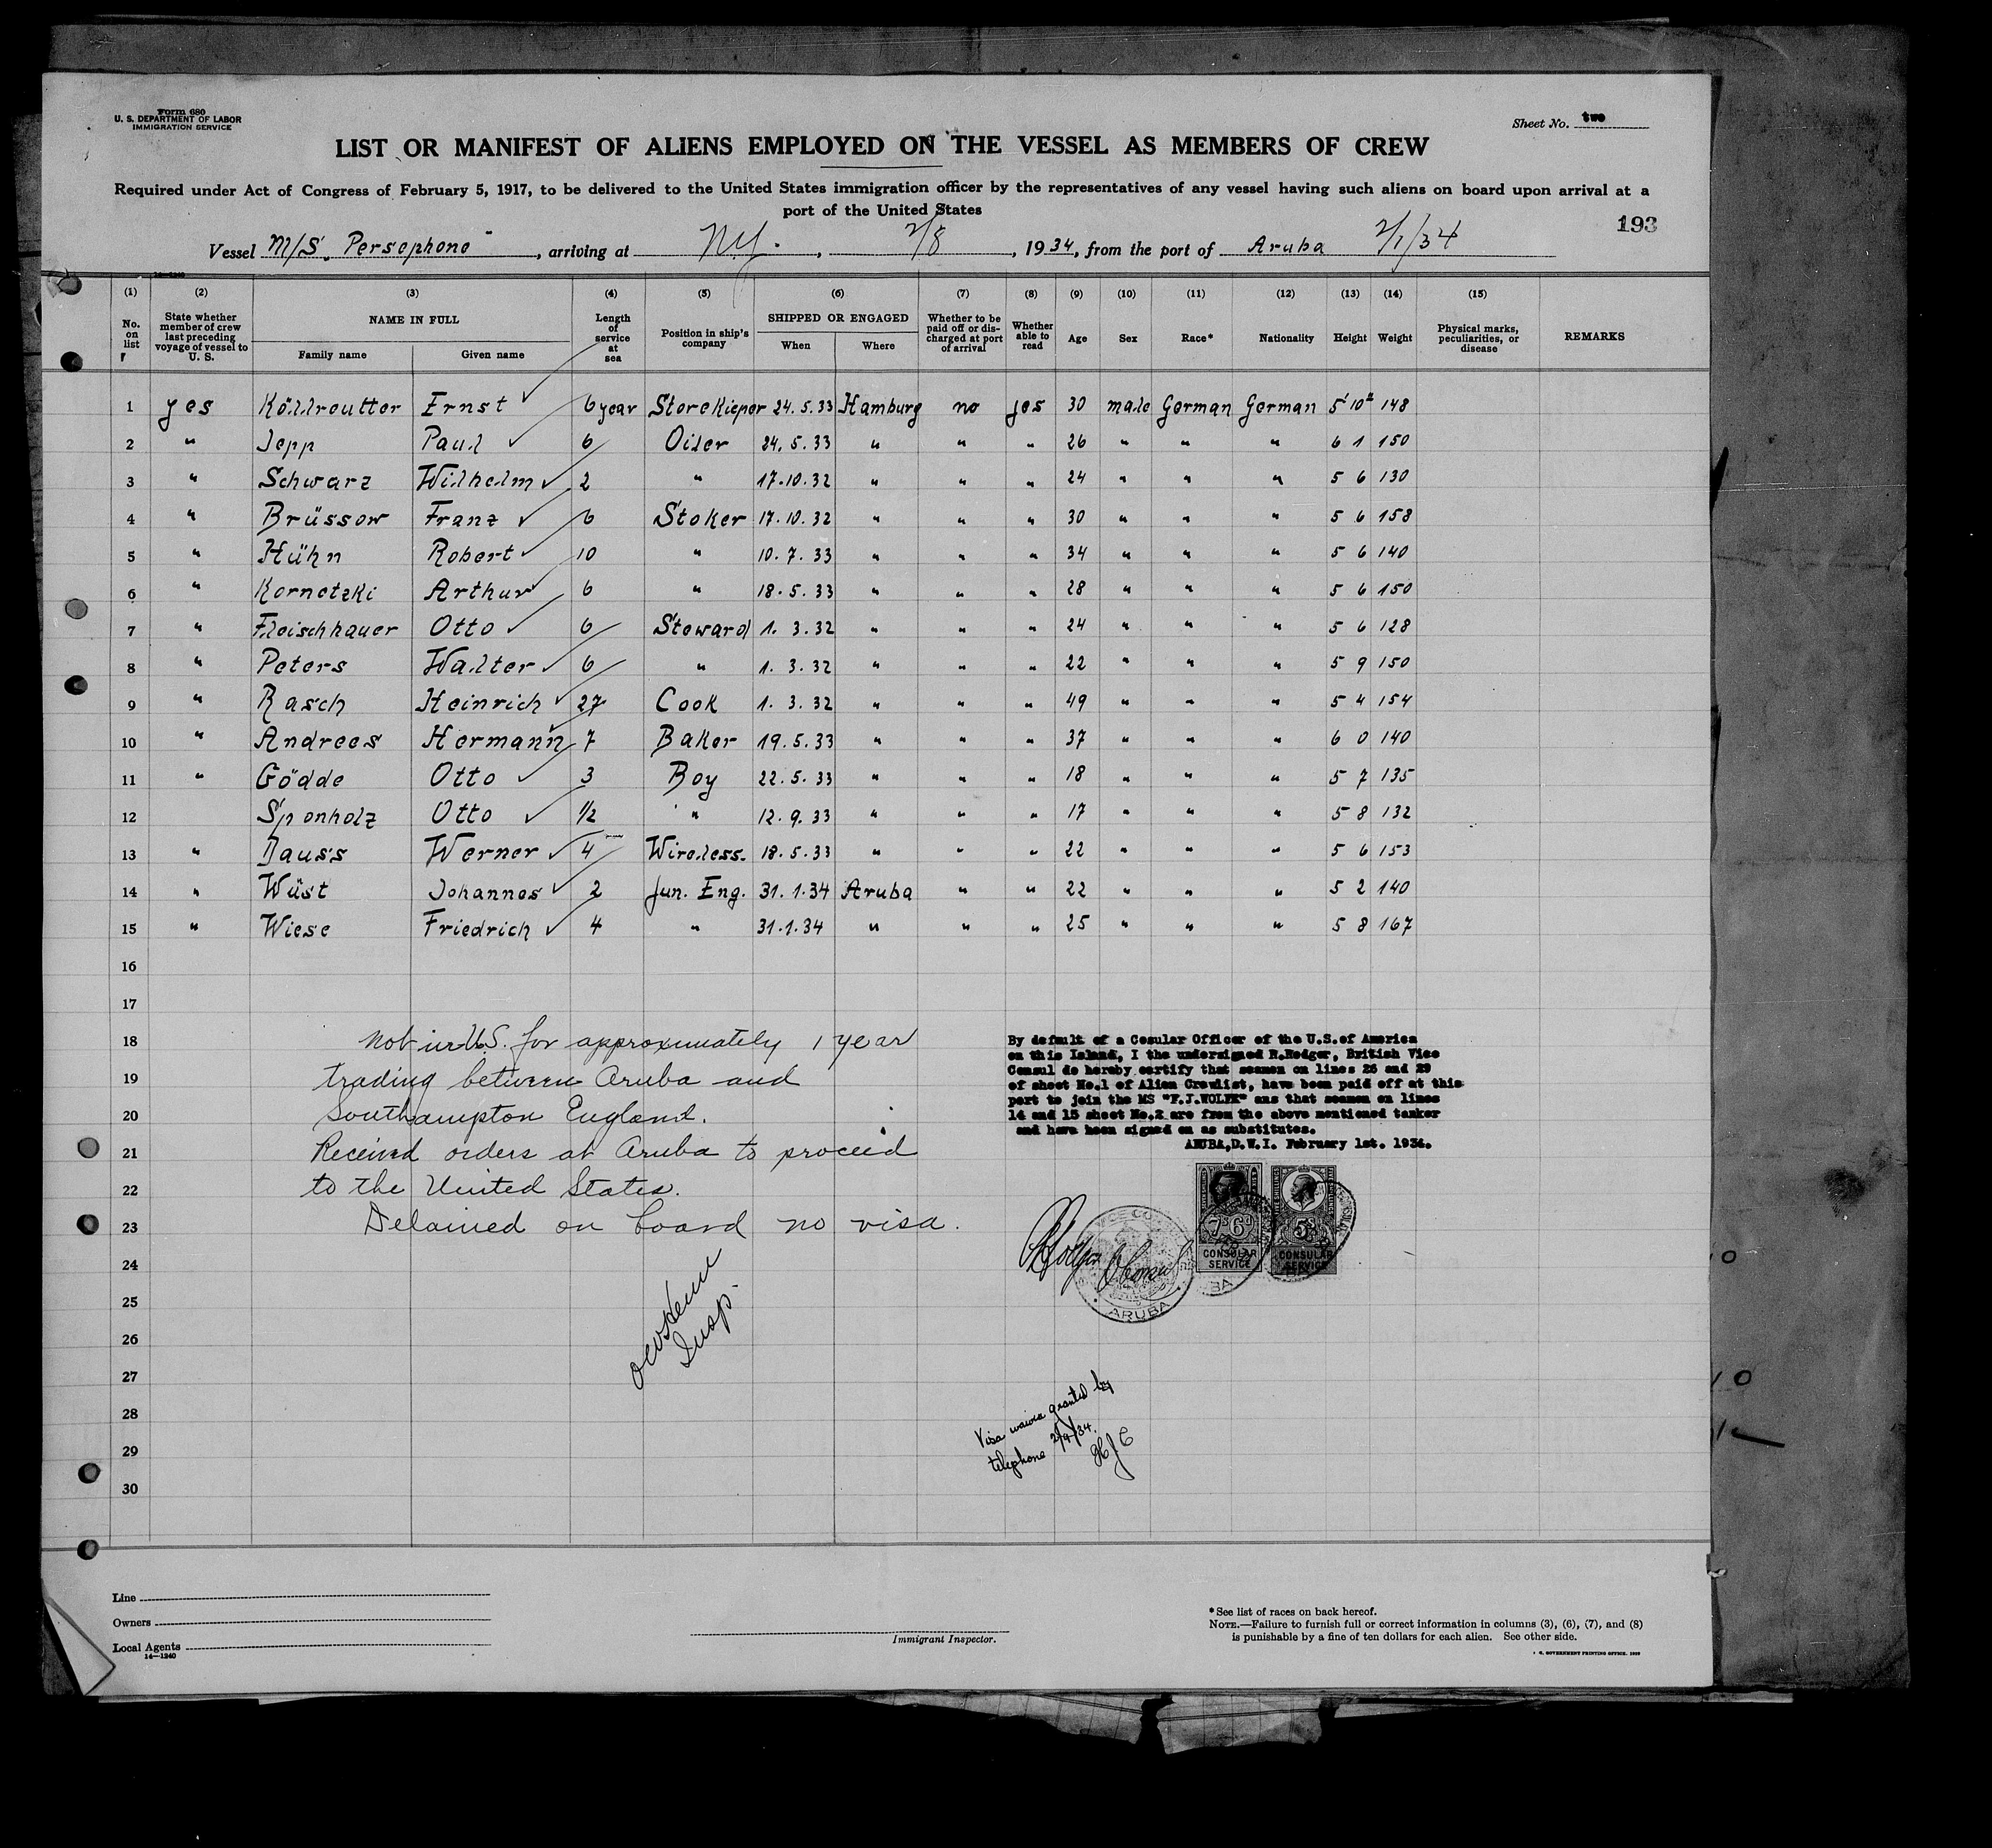 Form 680
U. S. DEPARTMENT OF LABOR
IMMIGRATION SERVICE
Sheet No. two
LIST OR MANIFEST OF ALIENS EMPLOYED ON THE VESSEL AS MEMBERS OF CREW
Required under Act of Congress of February 5, 1917, to be delivered to the United States immigration officer by the representatives of any vessel having such aliens on board upon arrival at a
port of the United States
193
Vessel M/S "Persephone", arriving at N.Y., 2/8, 1934, from the port of Aruba 2/1/34
14—1240
(1) (2) (3) (4) (5) (6) (7) (8) (9) (10) (11) (12) (13) (14) (15)
No. on list State whether member of crew last preceding voyage of vessel to U. S. NAME IN FULL Family name Given name Length of service at sea Position in ship's company SHIPPED OR ENGAGED When Where Whether to be paid off or discharged at port of arrival Whether able to read Age Sex Race* Nationality Height Weight Physical marks, peculiarities, or disease REMARKS
1 yes Költreutter Ernst 6 year Storekieper 24.5.33 Hamburg no yes 30 male German German 5'10" 148
2 " Jepp Paul 6 Oiler 24.5.33 " " " 26 " " " 6 1 150
3 " Schwarz Wilhelm 2 " 17.10.32 " " " 24 " " " 5 6 130
4 " Brüssow Franz 6 Stoker 17.10.32 " " " 30 " " " 5 6 158
5 " Hühn Robert 10 " 10.7.33 " " " 34 " " " 5 6 140
6 " Kornetzki Arthur 6 " 18.5.33 " " " 28 " " " 5 6 150
7 " Fleischhauer Otto 6 Steward 1.3.32 " " " 24 " " " 5 6 128
8 " Peters Walter 6 " 1.3.32 " " " 22 " " " 5 9 150
9 " Rasch Heinrich 27 Cook 1.3.32 " " " 49 " " " 5 4 154
10 " Andrees Hermann 7 Baker 19.5.33 " " " 37 " " " 6 0 140
11 " Gödde Otto 3 Boy 22.5.33 " " " 18 " " " 5 7 135
12 Sponholz Otto 1/2 " 12.9.33 " " " 17 " " " 5 8 132
13 " Dauss Werner 4 Wireless. 18.5.33 " " " 22 " " " 5 6 153
14 " Wüst Johannes 2 Jun. Eng. 31.1.34 Aruba " " 22 " " " 5 2 140
15 " Wiese Friedrich 4 " 31.1.34 " " " 25 " " " 5 8 167
16
17
18 Not in U.S. for approximately 1 year
19 trading between Aruba and
20 Southampton England.
21 Received orders at Aruba to proceed
22 to the United States.
23 Detained on board no visa.
24
25
26
27
28
29
30
Insp.
By default of a Cosular Officer of the U.S.of America
on this Island, I the undersigned R.Rodger, British Vice
Consul do hereby certify that seamen on lines 26 and 29
of sheet No.1 of Alien Crewlist, have been paid off at this
port to join the MS "F.J.WOLFE" ans that seamen on lines
14 and 15 sheet No.2 are from the above mentioned tanker
and have been signed on as substitutes.
ARUBA,D.W.I. February 1st. 1934.
VICE CO
ARUBA
7s6d
CONSULAR
SERVICE
5s
CONSULAR
SERVICE
Visa waiver granted by
telephone 2/9/34.
HJC
Line
Owners
Local Agents
14—1240
Immigrant Inspector.
*See list of races on back hereof.
NOTE.—Failure to furnish full or correct information in columns (3), (6), (7), and (8)
is punishable by a fine of ten dollars for each alien. See other side.
GOVERNMENT PRINTING OFFICE